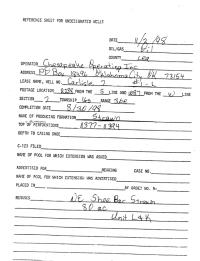 REFERENCE SHEET FOR UNDESIGNATED WELLS
DATE 11/2/98
OIL/GAS Oil
COUNTY Lea
OPERATOR Chesapeake Operating Inc
ADDRESS PO Box 18496 Oklahoma City OK 73154
LEASE NAME, WELL NO. Carlisle 7 #1-L
FOOTAGE LOCATION, FROM THE S LINE AND FROM THE W LINE
SECTION 7 TOWNSHIP 16S RANGE 36E
COMPLETION DATE 8/30/98
NAME OF PRODUCING FORMATION Strawn
TOP OF PERFORATIONS
DEPTH TO CASING SHOE
C-123 FILED
NAME OF POOL FOR WHICH EXTENSION WAS ASKED
ADVERTISED FOR HEARING CASE NO.
NAME OF POOL FOR WHICH EXTENSION WAS ADVERTISED
PLACED IN BY ORDER NO. R-
REMARKS NE Shoe Bar Strawn
80 ac
Unit L&K